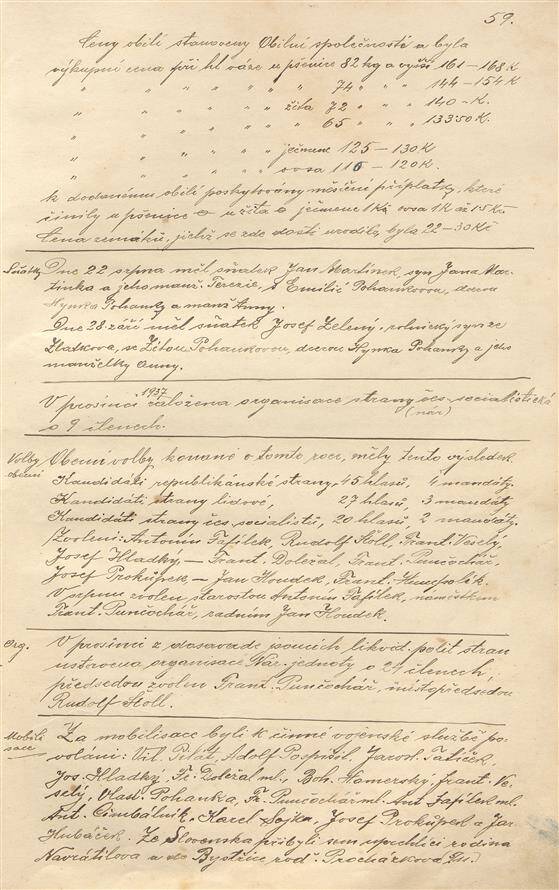 59.
Ceny obilí stanoveny Obilní společností a byla
výkupní cena při hl váze u pšenice 82 kg a vyšší 161–168 K
" " " " " " 74 " " 144–154 K
" " " " " žita 72 " " 140–K.
" " " " " " 65 " " 133.50 K.
" " " " ječmene 125–130 K
" " " " ovsa 115–120 K.
K dodanému obilí poskytovány měsíčné příplatky, které
činily u pšenice a u žita a ječmene 1 Kč, ovsa 1 K až 1.5 Kč
Cena zemáků, jichž se zde dosti urodilo, byla 22–30 Kč
Sňatky Dne 22 srpna měl sňatek Jan Martinek, syn Jana Mar-
tinka a jeho manž. Terezie, s Emilií Pohankovou, dcerou
Hynka Pohanky a manž. Anny.
Dne 28 září měl sňatek Josef Zelený, rolnický syn ze
Zlatkova, se Zitou Pohankovou, dcerou Hynka Pohanky a jeho
manželky Anny.
V prosinci 1937 založena organisace strany čes. socialistická
(nár)
o 9 členech.
Volby obecní Obecní volby konané v tomto roce, měly tento výsledek.
Kandidáti republikánské strany, 45 hlasů, 4 mandáty.
Kandidáti strany lidové, 27 hlasů, 3 mandáty.
Kandidáti strany čes. socialistů, 20 hlasů, 2 mandáty.
Zvoleni: Antonín Fafílek, Rudolf Štoll, Frant. Veselý,
Josef Hladký, – Frant. Doležal, Frant. Punčochář,
Josef Prokůpek, – Jan Houdek, Frant.
V srpnu zvolen starostou Antonín Fafílek, náměstkem
Frant. Punčochář, radním Jan Houdek.
Org. V prosinci z dosavade jsoucích, likvid. polit. stran
ustavena organisace Nár. jednoty o 27 členech
předsedou zvolen Frant. Punčochář, místopředsedou
Rudolf Štoll.
Mobilisace Za mobilisace byli k činné vojenské službě po-
voláni: Vil. Pilát, Adolf Pospíšil, Jarosl.
Jos. Hladký, Fr. Doležal ml., Boh. Hamerský, Frant. Ve-
selý, Vlad. Pohanka, Fr. Punčochář ml. Ant. Fafílek ml.
Ant. Cimbálník, Karel Sojka, Josef Prokůpek a Jar.
Hubáček. Ze Slovenska přibyli sem uprchlíci rodina
Navrátilova a do Bystřice rod. Procházkova